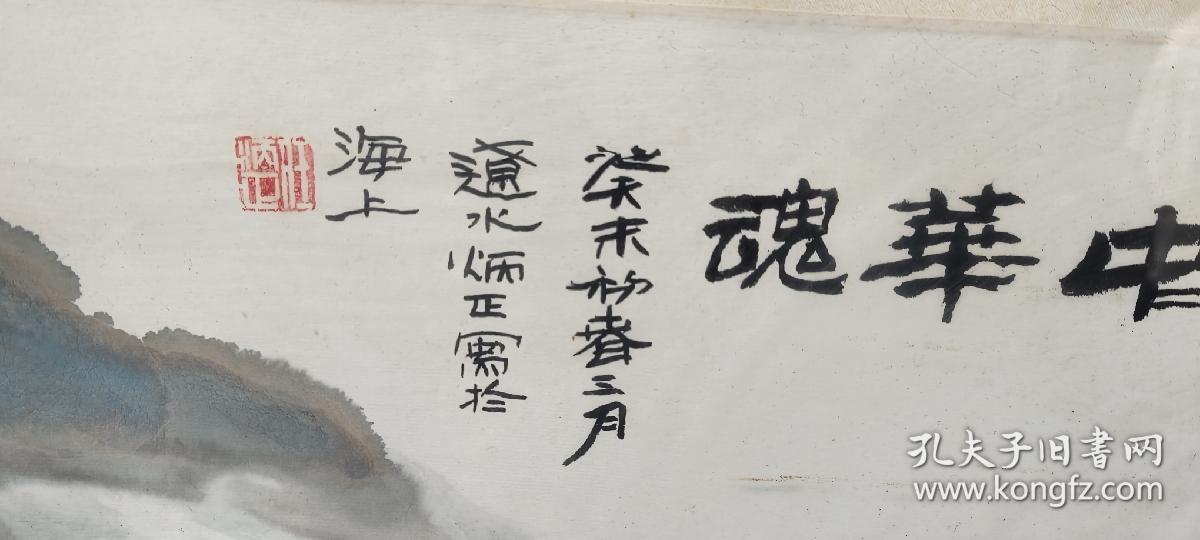 華魂
癸未初春三月
遼水炳正寫於
海上
孔夫子旧书网
www.kongfz.com